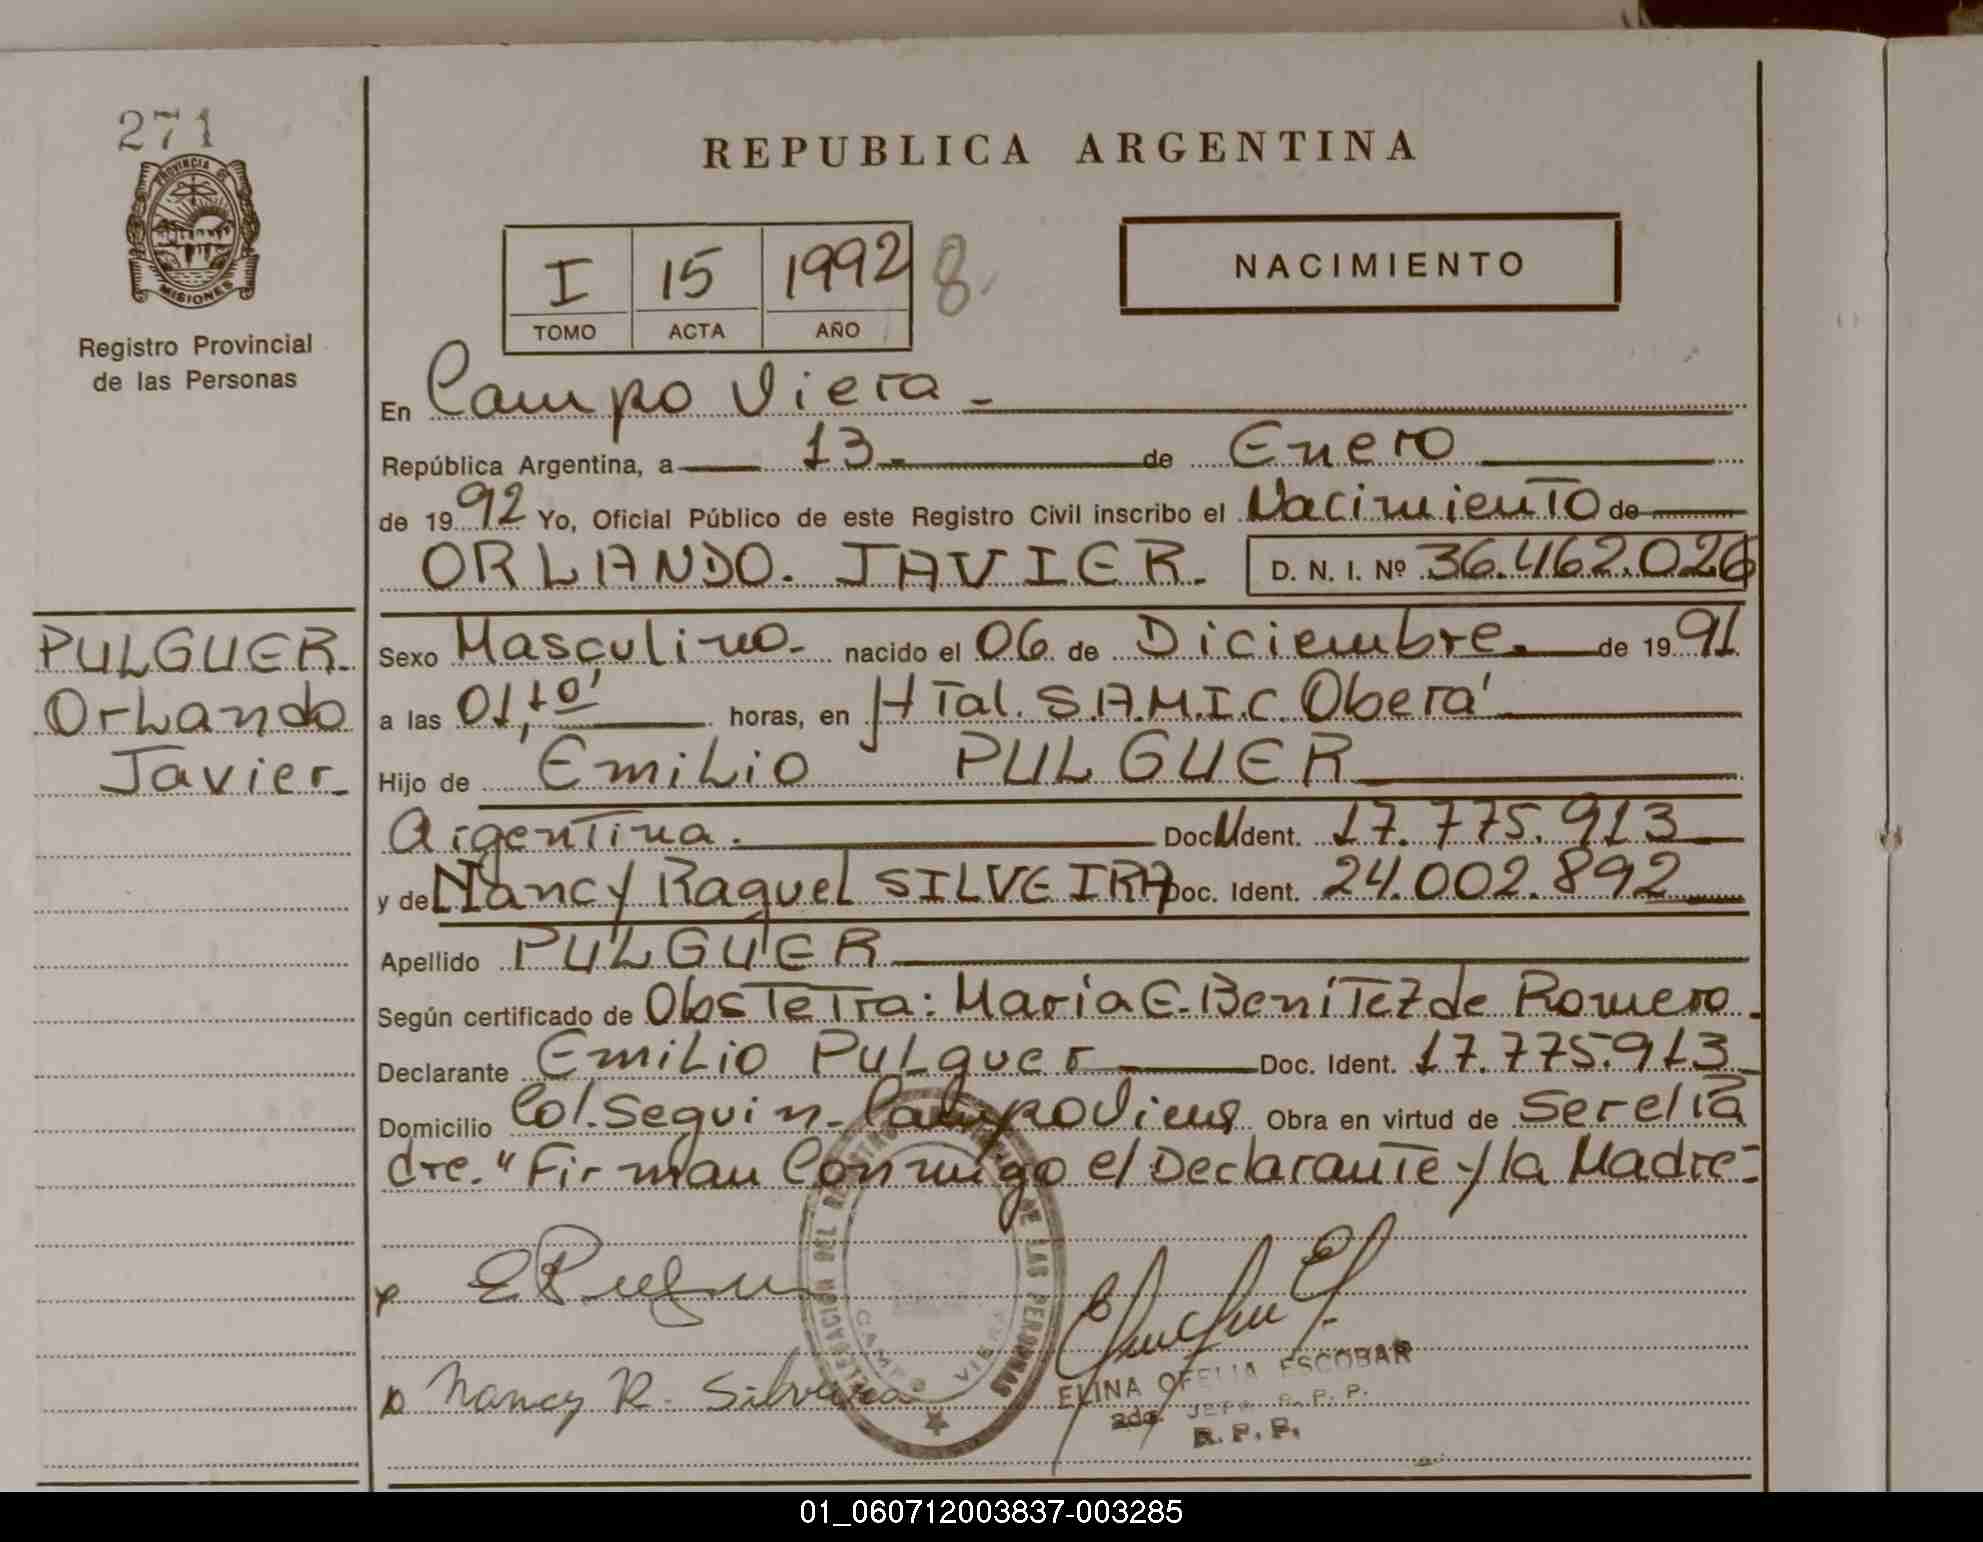 271
PROVINCIA DE
MISIONES
Registro Provincial
de las Personas
PULGUER.
Orlando
Javier.
REPUBLICA ARGENTINA
I 15 1992 8
TOMO ACTA AÑO
NACIMIENTO
En Campo Viera -
República Argentina, a 13. de Enero
de 1992 Yo, Oficial Público de este Registro Civil inscribo el Nacimiento de
ORLANDO. JAVIER. D. N. I. Nº 36.462.026
Sexo Masculino.- nacido el 06 de Diciembre. de 1991
a las 01,10' horas, en HTal. S.A.M.I.C. Oberá
Hijo de Emilio PULGUER
Argentina. Doc. Ident. 17.775.913
y de Nancy Raquel SILVEIRA Doc. Ident. 24.002.892
Apellido PULGUER
Según certificado de ObsTeTra: María E. BeníTez de Romero.
Declarante Emilio Pulguer Doc. Ident. 17.775.913
Domicilio Col. Seguin - Campo Viera Obra en virtud de Ser el Pa
dre." Firman Conmigo el Declarante y la Madre=
E Pulguer
Nancy R. Silveira
DELEGACION DEL REGISTRO DE LAS PERSONAS
CAMPO VIERA
ELINA OFELIA ESCOBAR
JEFA R. P. P.
R. P. P.
01_060712003837-003285